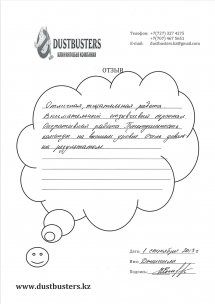 DUSTBUSTERS
КЛИНИНГОВАЯ КОМПАНИЯ
Телефон: +7(727) 327 4275
+7(707) 467 5651
E-mail: dustbusters.kz@gmail.com
ОТЗЫВ
Отличная, тщательная работа
Внимательный отзывчивый персонал.
Оперативная работа. Пунктуальность
на высшем уровне. Очень довольны
результатом
Дата: 1 сентября 2013 г
Имя:
Подпись:
www.dustbusters.kz